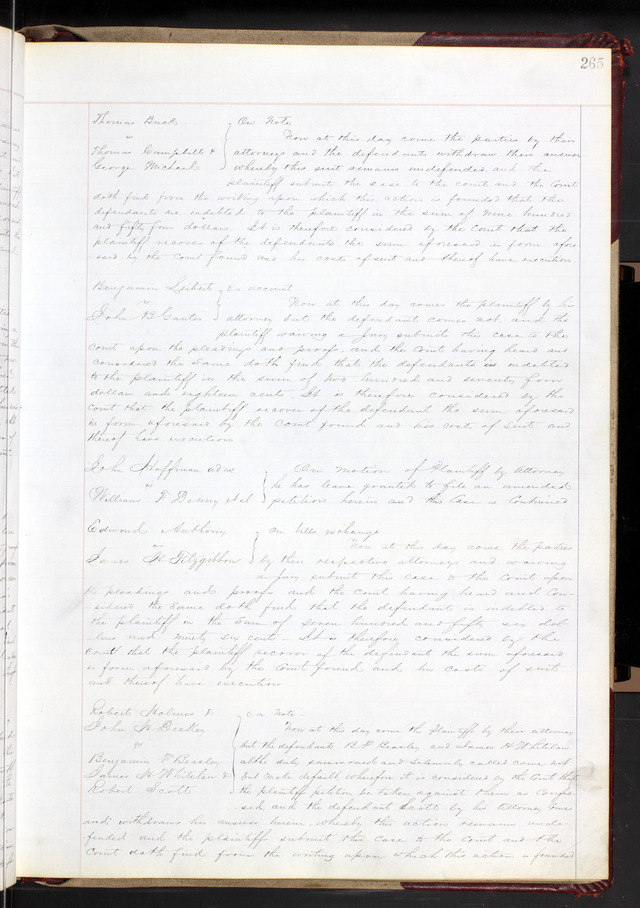 265
Thomas Buck
vs
Thomas Campbell &
George Michael
On Note
Now at this day come the parties by their
attorneys and the defendants withdraw their answer
whereby this suit remains undefended and the
plaintiff submit the case to the court and the Court
doth find from the writing upon which this action is founded that the
defendants are indebted to the plaintiff in the sum of nine hundred
and fifty four dollars. It is therefore considered by the Court that the
plaintiff recover of the defendants the sum aforesaid in form afore
said by the Court found and his costs of suit and thereof have execution
Benjamin
vs
John B
on account
Now at this day come the plaintiff by his
attorney but the defendant comes not and the
plaintiff waiving a Jury submits this case to the
Court upon the pleadings and proofs and the Court having heard and
considered the same doth find that the defendants is indebted
to the plaintiff in the sum of two hundred and seventy four
dollars and eighteen cents. It is therefore considered by the
Court that the plaintiff recover of the defendant the sum aforesaid
in form aforesaid by the Court found and his cost of suit and
thereof have execution
John Hoffman admr
vs
William F Denny et al
On motion of Plaintiff by Attorney
he has leave granted to file an amended
petition herein and this Case is Continued
Edward Anthony
vs
James H Fitzgibbon
on bills exchange
Now at this day come the parties
by their respective attorneys and waiving
a Jury submit this case to the Court upon
the pleadings and proofs and the court having heard and Con-
sidered the same doth find that the defendant is indebted to
the plaintiff in the sum of seven hundred and fifty six dol-
lars and ninety six cents. It is therefore considered by the
Court that the plaintiff recover of the defendant the sum aforesaid
in form aforesaid by the Court found and his costs of suit
and thereof have execution
Robert Holmes &
John H Decker
vs
Benjamin F Beasley
James H Whitelaw &
Robert Scott
On Note
Now at this day come the plaintiffs by their attorney
but the defendants B F Beasley and James H Whitelaw
altho duly summoned and solemnly called come not
but make default wherefore it is considered by the Court that
the plaintiff petition be taken against them as Confes
sed, and the defendant Scott by his Attorney comes
and withdraws his answer herein, whereby this action remains unde-
fended and the plaintiffs submit this case to the Court and the
Court doth find from the writing upon which this action is founded